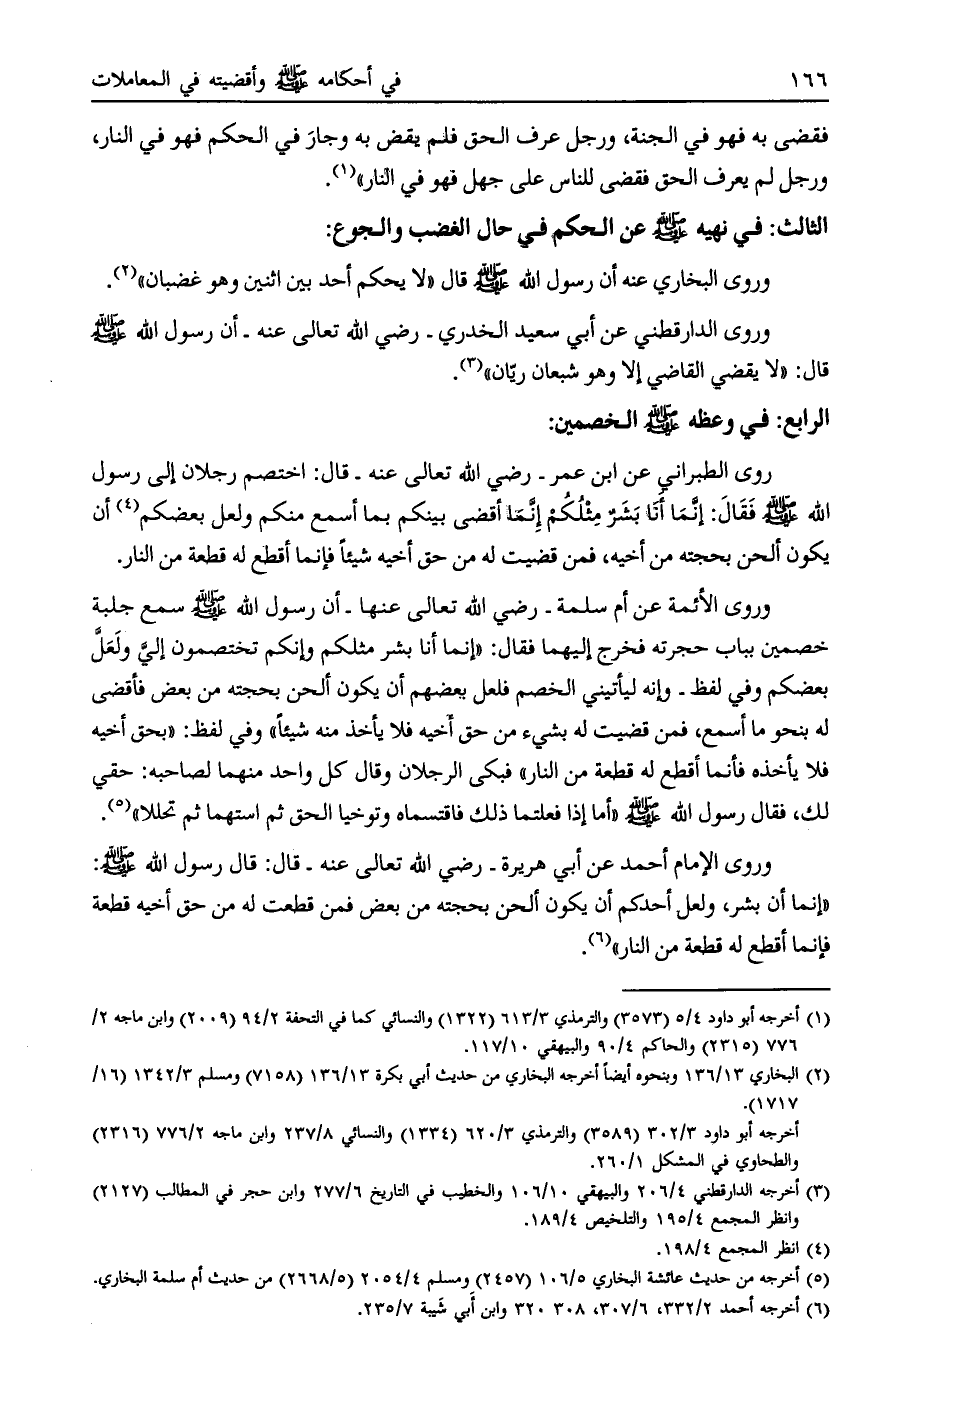 ١٦٦ في أحكامه ﷺ وأقضيته في المعاملات
فقضى به فهو في الجنة، ورجل عرف الحق فلم يقض به وجارَ في الحكم فهو في النار،
ورجل لم يعرف الحق فقضى للناس على جهل فهو في النار»(١).
الثالث: في نهيه ﷺ عن الحكم في حال الغضب والجوع:
وروى البخاري عنه أن رسول الله ﷺ قال «لا يحكم أحد بين اثنين وهو غضبان»(٢).
وروى الدارقطني عن أبي سعيد الخدري ـ رضي الله تعالى عنه ـ أن رسول الله ﷺ
قال: «لا يقضي القاضي إلا وهو شبعان ريّان»(٣).
الرابع: في وعظه ﷺ الخصمين:
روى الطبراني عن ابن عمر ـ رضي الله تعالى عنه ـ قال: اختصم رجلان إلى رسول
الله ﷺ فَقَالَ: إنَّمَا أَنَا بَشَرٌ مِثْلُكُمْ إِنَّمَا أقضى بينكم بما أسمع منكم ولعل بعضكم(٤) أن
يكون ألحن بحجته من أخيه، فمن قضيت له من حق أخيه شيئاً فإنما أقطع له قطعة من النار.
وروى الأئمة عن أم سلمة ـ رضي الله تعالى عنها ـ أن رسول الله ﷺ سمع جلبة
خصمين بباب حجرته فخرج إليهما فقال: «إنما أنا بشر مثلكم وإنكم تختصمون إليَّ ولَعَلَّ
بعضكم وفي لفظ ـ وإنه ليأتيني الخصم فلعل بعضهم أن يكون ألحن بحجته من بعض فأقضى
له بنحو ما أسمع، فمن قضيت له بشيء من حق أخيه فلا يأخذ منه شيئاً» وفي لفظ: «بحق أخيه
فلا يأخذه فأنما أقطع له قطعة من النار» فبكى الرجلان وقال كل واحد منهما لصاحبه: حقي
لك، فقال رسول الله ﷺ «أما إذا فعلتما ذلك فاقتسماه وتوخيا الحق ثم استهما ثم تحللا»(٥).
وروى الإمام أحمد عن أبي هريرة ـ رضي الله تعالى عنه ـ قال: قال رسول الله ﷺ:
«إنما أن بشر، ولعل أحدكم أن يكون ألحن بحجته من بعض فمن قطعت له من حق أخيه قطعة
فإنما أقطع له قطعة من النار»(٦).
(١) أخرجه أبو داود ٥/٤ (٣٥٧٣) والترمذي ٦١٣/٣ (١٣٢٢) والنسائي كما في التحفة ٩٤/٢ (٢٠٠٩) وابن ماجه ٢/
٧٧٦ (٢٣١٥) والحاكم ٩٠/٤ والبيهقي ١١٧/١٠.
(٢) البخاري ١٣٦/١٣ وبنحوه أيضاً أخرجه البخاري من حديث أبي بكرة ١٣٦/١٣ (٧١٥٨) ومسلم ١٣٤٢/٣ (١٦/
١٧١٧).
أخرجه أبو داود ٣٠٢/٣ (٣٥٨٩) والترمذي ٦٢٠/٣ (١٣٣٤) والنسائي ٢٣٧/٨ وابن ماجه ٧٧٦/٢ (٢٣١٦)
والطحاوي في المشكل ٢٦٠/١.
(٣) أخرجه الدارقطني ٢٠٦/٤ والبيهقي ١٠٦/١٠ والخطيب في التاريخ ٢٧٧/٦ وابن حجر في المطالب (٢١٢٧)
وانظر المجمع ١٩٥/٤ والتلخيص ١٨٩/٤.
(٤) انظر المجمع ١٩٨/٤.
(٥) أخرجه من حديث عائشة البخاري ١٠٦/٥ (٢٤٥٧) ومسلم ٢٠٥٤/٤ (٢٦٦٨/٥) من حديث أم سلمة البخاري.
(٦) أخرجه أحمد ٣٣٢/٢، ٣٠٧/٦، ٣٠٨ ٣٢٠ وابن أبي شيبة ٢٣٥/٧.